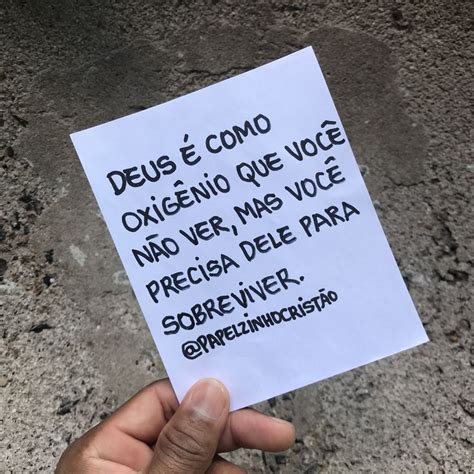 DEUS É COMO
OXIGÊNIO QUE VOCÊ
NÃO VER, MAS VOCÊ
PRECISA DELE PARA
SOBREVIVER.
@PAPELZINHOCRISTÃO